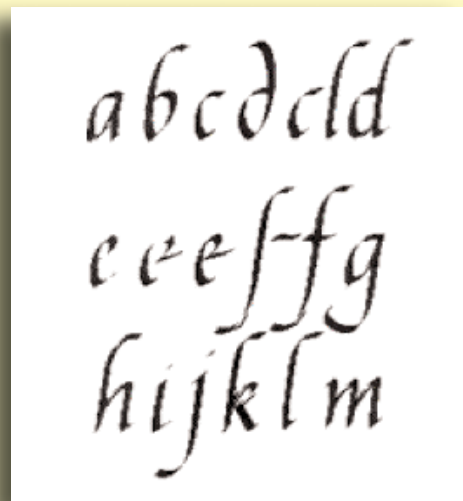 a b c d c l d
e e e ſ f g
h i j k l m